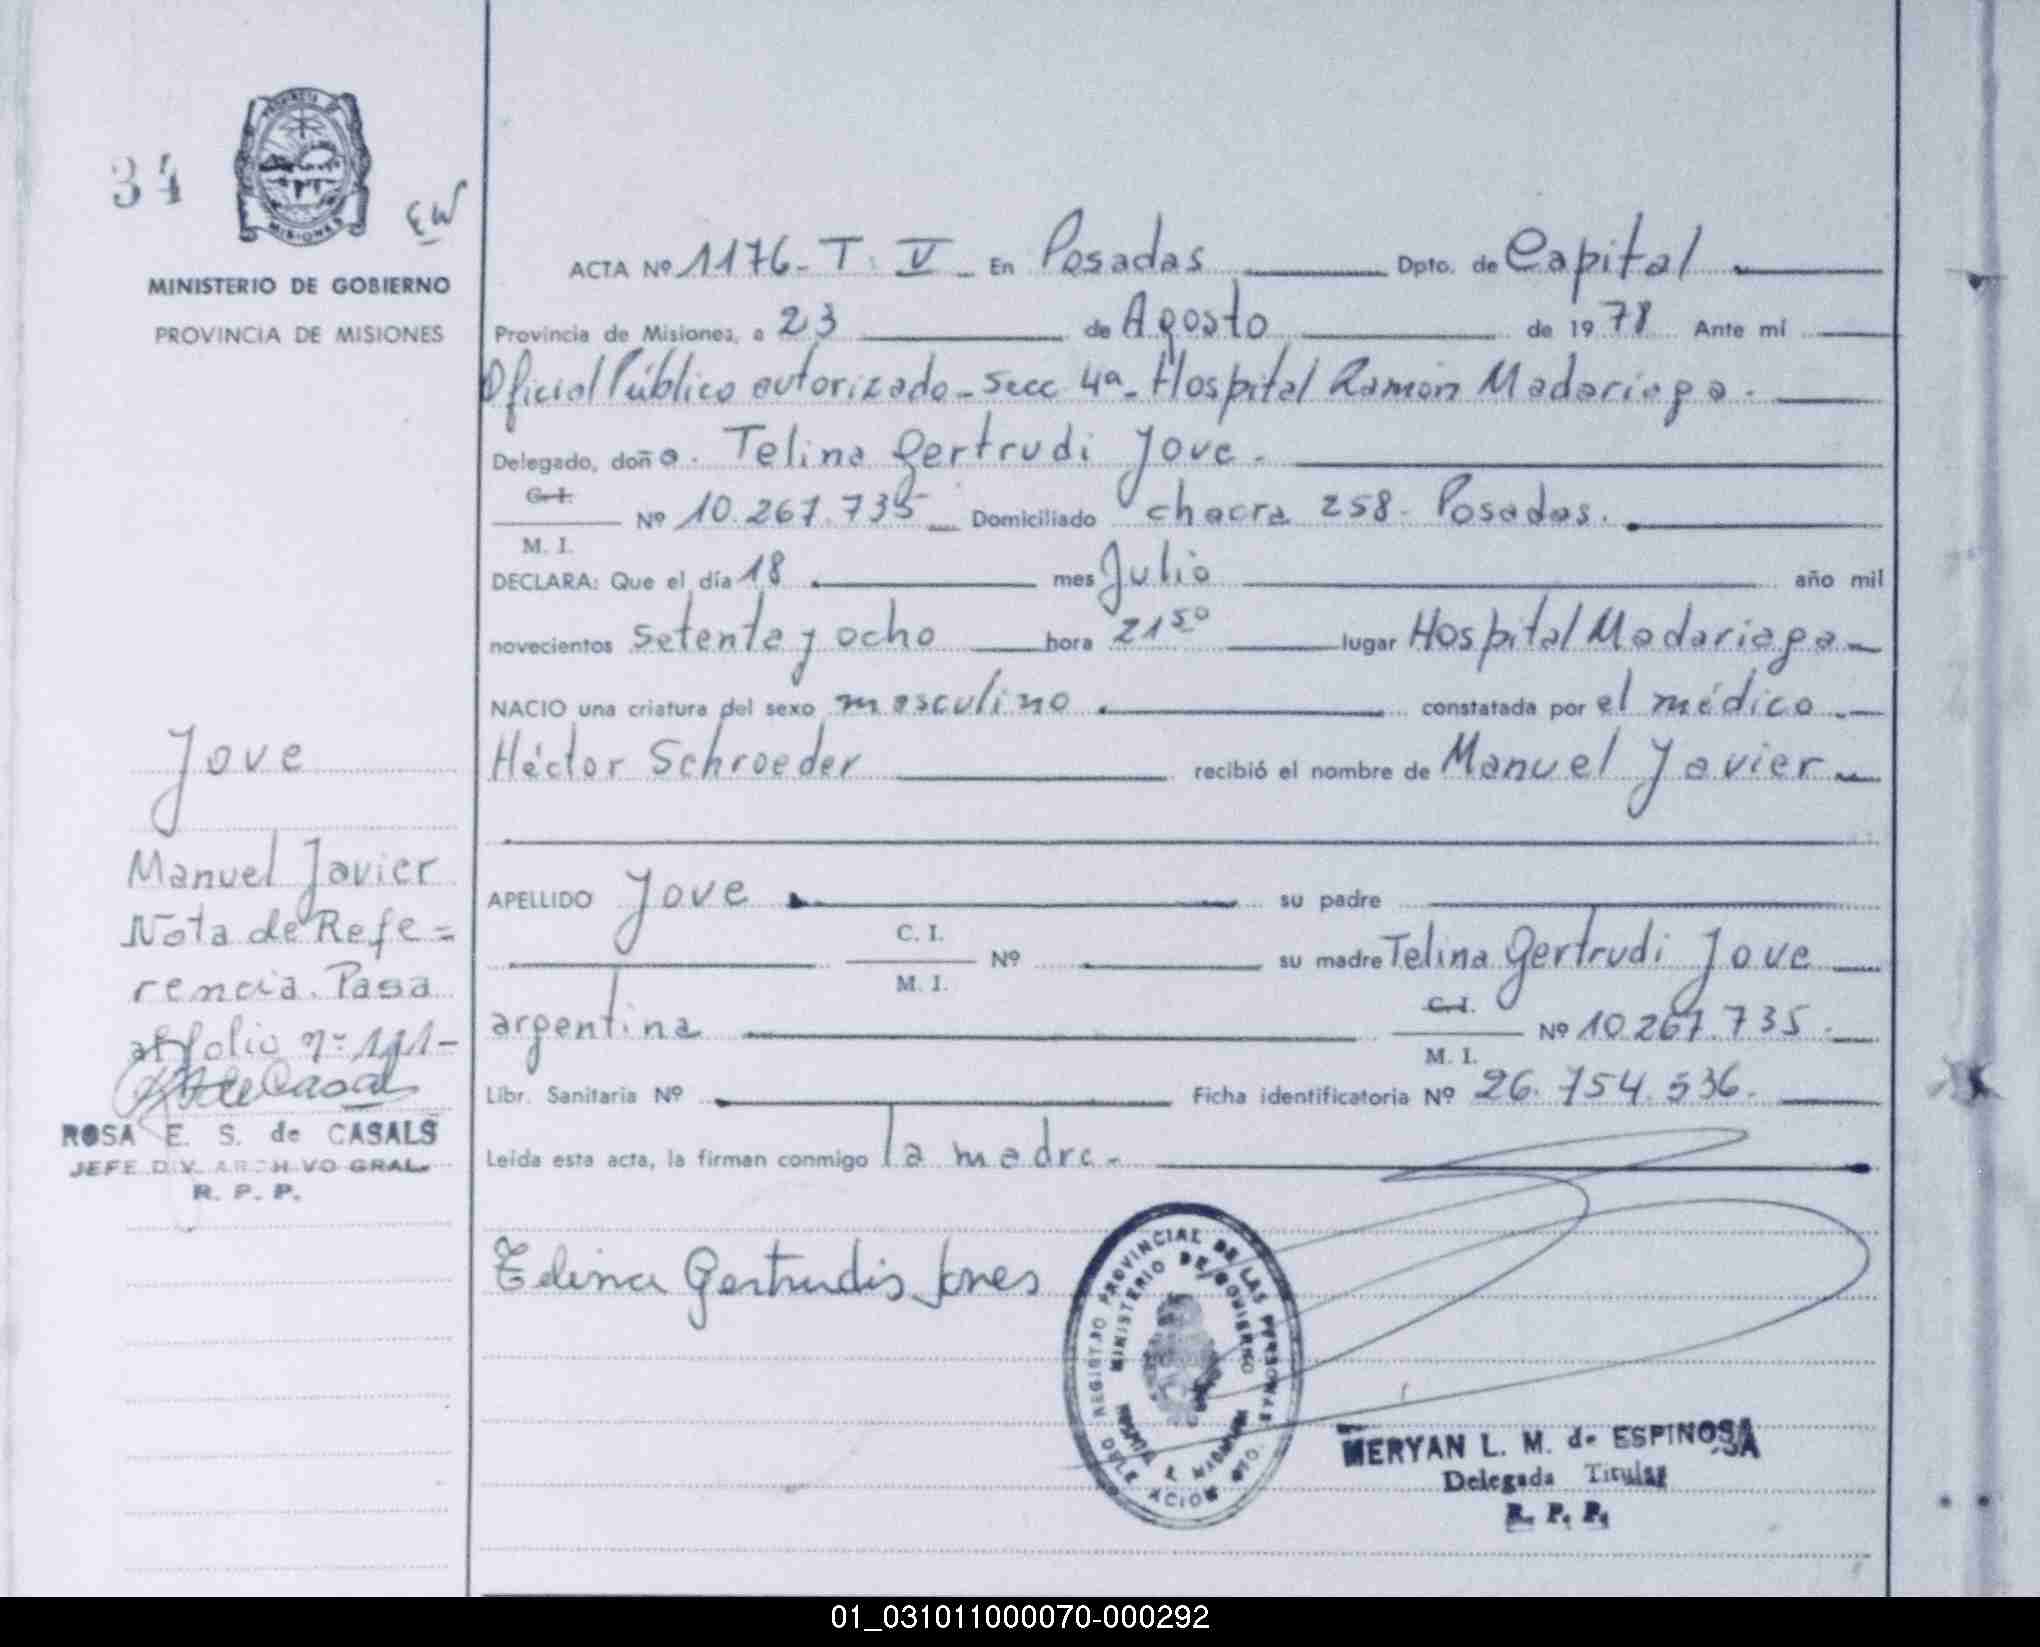 34
PROVINCIA DE
MISIONES
EW
MINISTERIO DE GOBIERNO
PROVINCIA DE MISIONES
ACTA Nº 1176 - T. V - En Posadas Dpto. de Capital
Provincia de Misiones, a 23 de Agosto de 1978 Ante mí
Oficial Público autorizado - Secc 4ª - Hospital Ramón Madariaga.
Delegado, doña. Telina Gertrudi Jove.
C. I.
M. I.
Nº 10.267.735 Domiciliado chacra 258. Posadas.
DECLARA: Que el día 18 mes Julio año mil
novecientos setenta y ocho hora 21 50 lugar Hospital Madariaga
NACIO una criatura del sexo masculino constatada por el médico
Héctor Schroeder recibió el nombre de Manuel Javier
APELLIDO Jove su padre
C. I.
M. I.
Nº su madre Telina Gertrudi Jove
argentina
C. I.
M. I.
Nº 10.267.735.
Libr. Sanitaria Nº Ficha identificatoria Nº 26.754.536.
Leída esta acta, la firman conmigo la madre.
Telina Gertrudis Jones
Jove
Manuel Javier
Nota de Refe=
rencia. Pasa
al folio nº 111-
ROSA E. S. de CASALS
JEFE DIV. ARCHIVO GRAL.
R. P. P.
REGISTRO PROVINCIAL DE LAS PERSONAS
MINISTERIO DE GOBIERNO
DELEGACION
MERYAN L. M. de ESPINOSA
Delegada Titular
R. P. P.
01_031011000070-000292